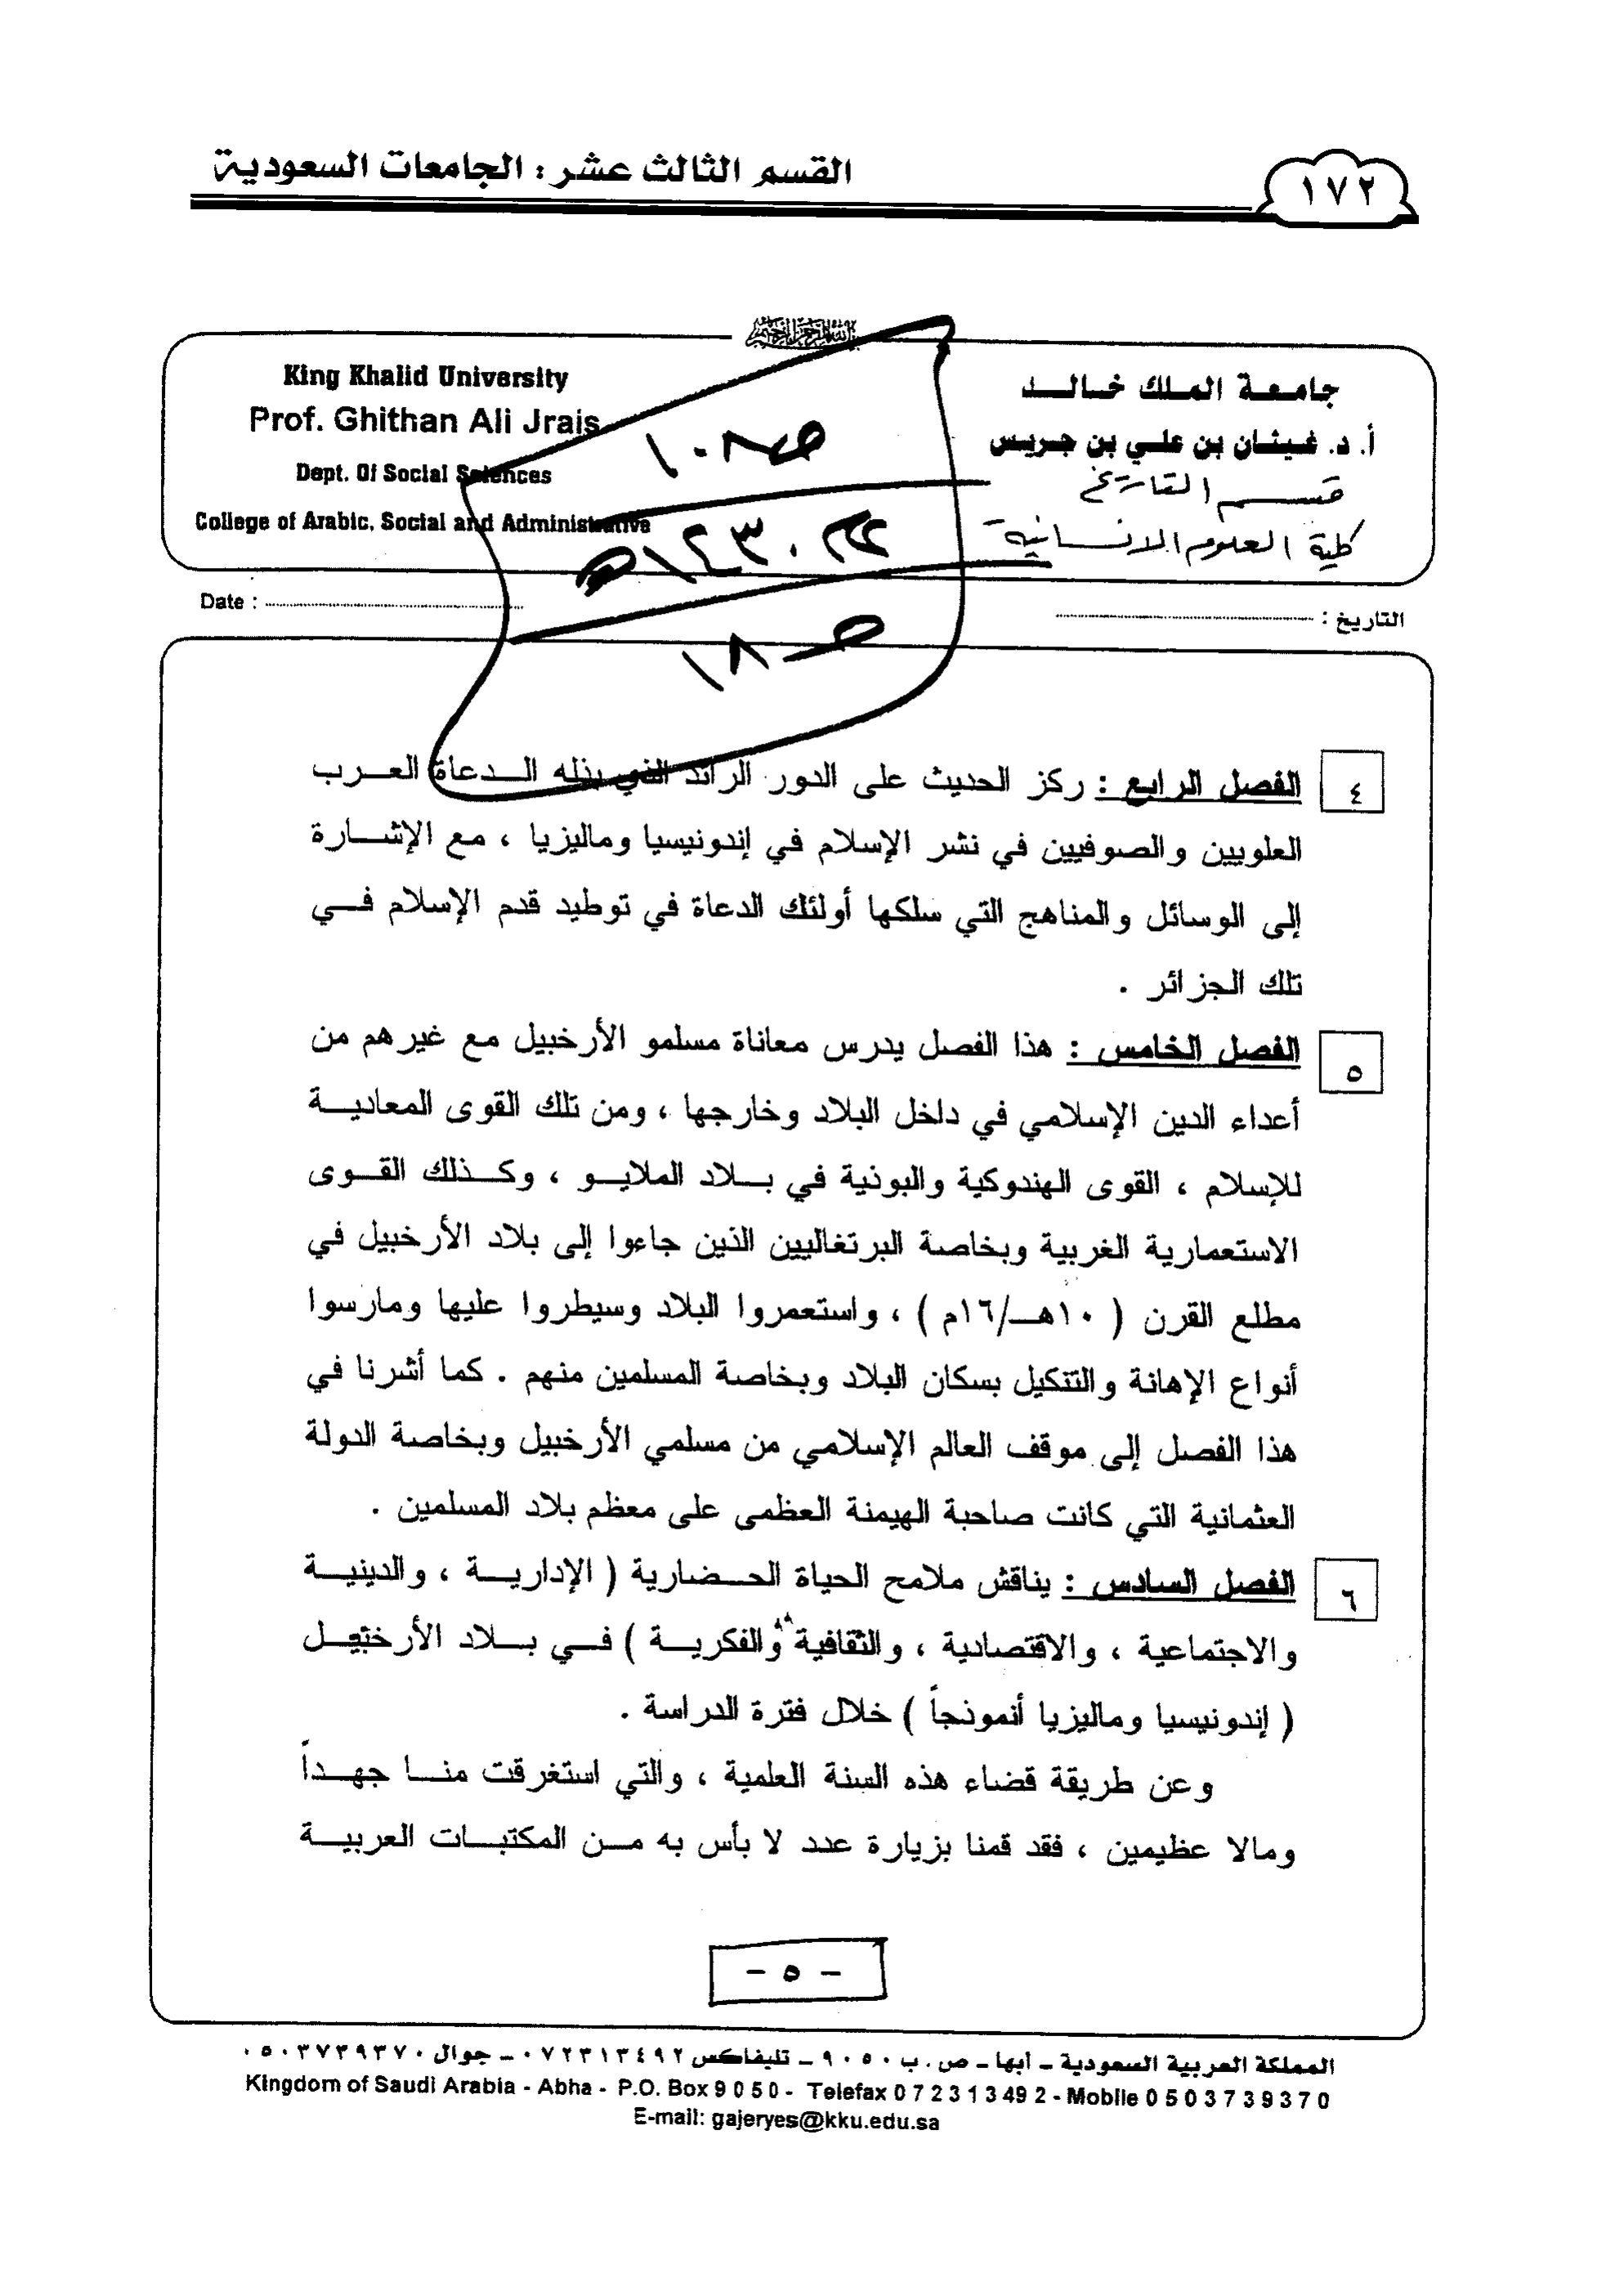 القسم الثالث عشر : الجامعات السعودية
١٧٢
جامعة الملك خالد
أ. د. غيثان بن علي بن جريس
قسم التاريخ
كلية العلوم الانسانية
King Khalid University
Prof. Ghithan Ali Jrais
Dept. Of Social Sciences
College of Arabic, Social and Administrative
ص١٠٨
١٤٣٠
ص١٨
التاريخ :
Date :
٤
الفصل الرابع : ركز الحديث على الدور الرائد الذي بذله الدعاة العرب
العلويين والصوفيين في نشر الإسلام في إندونيسيا وماليزيا ، مع الإشارة
إلى الوسائل والمناهج التي سلكها أولئك الدعاة في توطيد قدم الإسلام في
تلك الجزائر .
٥
الفصل الخامس : هذا الفصل يدرس معاناة مسلمو الأرخبيل مع غيرهم من
أعداء الدين الإسلامي في داخل البلاد وخارجها ، ومن تلك القوى المعادية
للإسلام ، القوى الهندوكية والبوذية في بلاد الملايو ، وكذلك القوى
الاستعمارية الغربية وبخاصة البرتغاليين الذين جاءوا إلى بلاد الأرخبيل في
مطلع القرن ( ١٠هـ/١٦م ) ، واستعمروا البلاد وسيطروا عليها ومارسوا
أنواع الإهانة والتنكيل بسكان البلاد وبخاصة المسلمين منهم . كما أشرنا في
هذا الفصل إلى موقف العالم الإسلامي من مسلمي الأرخبيل وبخاصة الدولة
العثمانية التي كانت صاحبة الهيمنة العظمى على معظم بلاد المسلمين .
٦
الفصل السادس : يناقش ملامح الحياة الحضارية ( الإدارية ، والدينية
والاجتماعية ، والاقتصادية ، والثقافية والفكرية ) في بلاد الأرخبيل
( إندونيسيا وماليزيا أنموذجاً ) خلال فترة الدراسة .
وعن طريقة قضاء هذه السنة العلمية ، والتي استغرقت منا جهداً
ومالا عظيمين ، فقد قمنا بزيارة عدد لا بأس به من المكتبات العربية
- ٥ -
المملكة العربية السعودية - أبها - ص . ب ٩٠٥٠ - تليفاكس ٠٧٢٣١٣٤٩٢ - جوال ٠٥٠٣٧٣٩٣٧٠
Kingdom of Saudi Arabia - Abha - P.O. Box 9 0 5 0 - Telefax 0 7 2 3 1 3 4 9 2 - Mobile 0 5 0 3 7 3 9 3 7 0
E-mail: gajeryes@kku.edu.sa